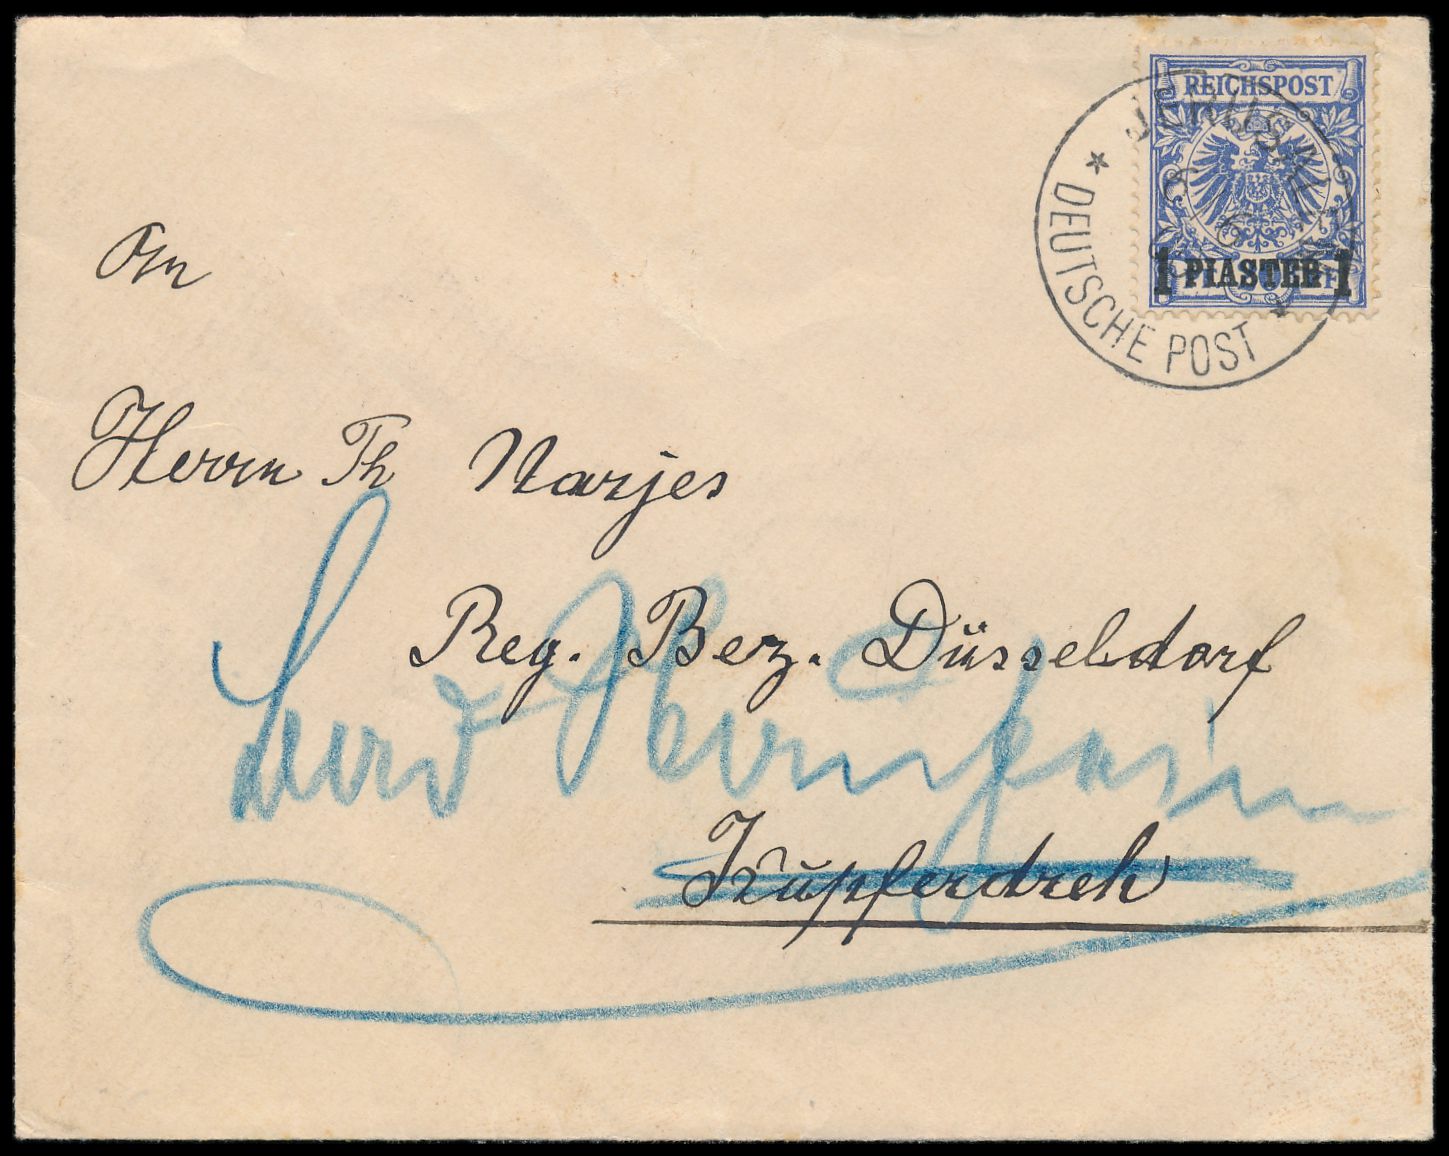 REICHSPOST
1 PIASTER 1
JERUSALEM
* DEUTSCHE POST *
An
Herrn Th Narjes
Reg. Bez. Düsseldorf
Kupferdreh